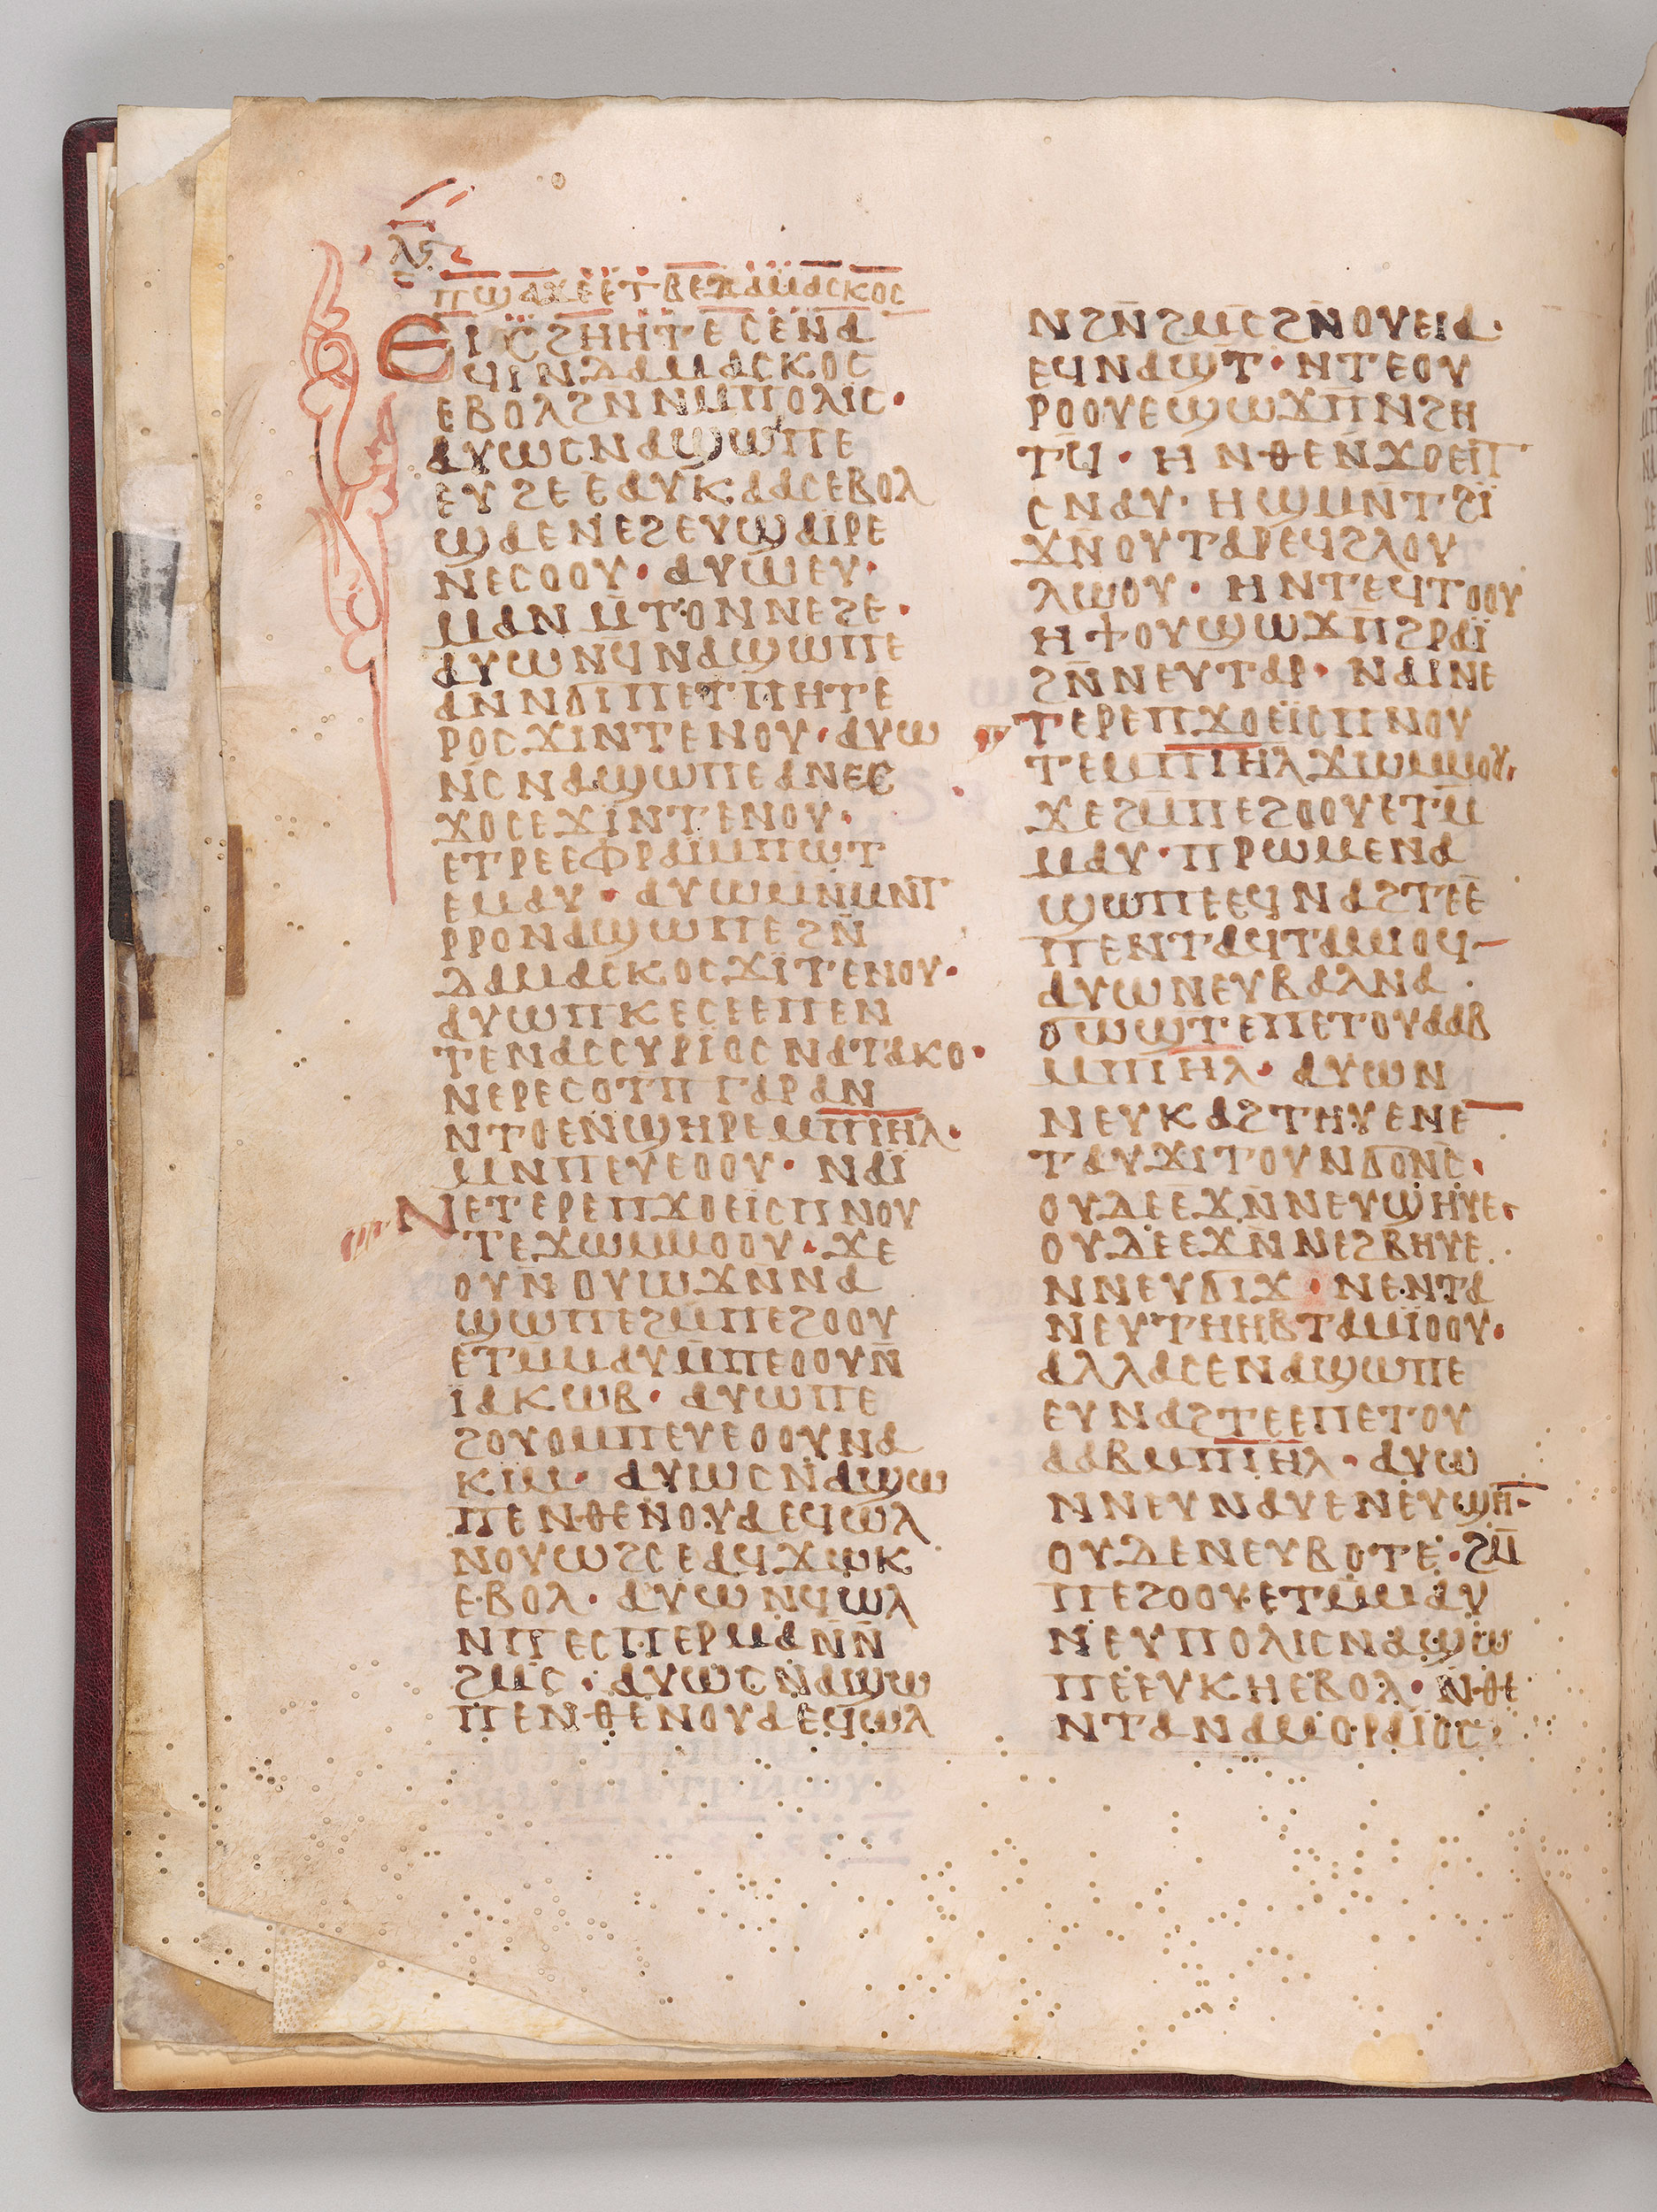 ⲗⲋ
ⲡϣⲁϫⲉⲉⲧⲃⲉⲇⲁⲙⲁⲥⲕⲟⲥ
ⲉⲓⲥϩⲏⲏⲧⲉⲥⲉⲛⲁ
ϥⲓⲛⲇⲁⲙⲁⲥⲕⲟⲥ
ⲉⲃⲟⲗϩⲛⲛⲙⲡⲟⲗⲓⲥ·
ⲁⲩⲱⲥⲛⲁϣⲱⲡⲉ
ⲉⲩϩⲉⲉⲁⲩⲕⲁⲁⲥⲉⲃⲟⲗ
ϣⲁⲉⲛⲉϩⲉⲩϣⲁⲓⲣⲉ
ⲛⲉⲥⲟⲟⲩ·ⲁⲩⲱⲉⲩ·
ⲙⲁⲛⲙ̄ⲧⲟⲛⲛⲉϩⲉ·
ⲁⲩⲱⲛϥⲛⲁϣⲱⲡⲉ
ⲁⲛⲛϭⲓⲡⲉⲧⲡⲏⲧⲉ
ⲣⲟⲥϫⲓⲛⲧⲉⲛⲟⲩ·ⲁⲩⲱ
ⲛ̄ⲥⲛⲁϣⲱⲡⲉⲁⲛⲉⲥ
ϫⲟⲥⲉϫⲓⲛⲧⲉⲛⲟⲩ·
ⲉⲧⲣⲉⲉⲫⲣⲁⲓ̈ⲙⲡⲱⲧ
ⲉⲙⲁⲩ·ⲁⲩⲱⲙⲛ̄ⲙⲛ̄ⲧ
ⲣⲣⲟⲛⲁϣⲱⲡⲉϩⲛ̄
ⲇⲁⲙⲁⲥⲕⲟⲥϫⲓⲧⲉⲛⲟⲩ·
ⲁⲩⲱⲡⲕⲉⲥⲉⲉⲡⲉⲛ
ⲧⲉⲛⲁⲥⲥⲩⲣⲓⲟⲥⲛⲁⲧⲁⲕⲟ·
ⲛⲉⲣⲉⲥⲟⲧⲡⲅⲁⲣⲁⲛ
ⲛⲧⲟⲉⲛϣⲏⲣⲉⲙⲡⲓⲏⲗ·
ⲙⲛⲡⲉⲩⲉⲟⲟⲩ·ⲛⲁⲓ̈
ⲛⲉⲧⲉⲣⲉⲡϫⲟⲉⲓⲥⲡⲛⲟⲩ
ⲧⲉϫⲱⲙⲙⲟⲟⲩ·ϫⲉ
ⲟⲩⲛ̄ⲟⲩⲱϫⲛ̄ⲛⲁ
ϣⲱⲡⲉϩⲙ̄ⲡⲉϩⲟⲟⲩ
ⲉⲧⲙⲙⲁⲩⲙ̄ⲡⲉⲟⲟⲩⲛ̄
ⲓ̈ⲁⲕⲱⲃ·ⲁⲩⲱⲡⲉ
ϩⲟⲩⲟⲙⲡⲉⲩⲉⲟⲟⲩⲛⲁ
ⲕⲓⲙ·ⲁⲩⲱⲥⲛⲁϣⲱ
ⲡⲉⲛⲑⲉⲛⲟⲩⲁⲉϥⲱⲗ
ⲛⲟⲩⲱϩⲥⲉⲁϥϫⲱⲕ
ⲉⲃⲟⲗ·ⲁⲩⲱⲛϥⲱⲗ
ⲛⲡⲉⲥⲡⲉⲣⲙⲁⲛ̄ⲛ̄
ϩⲙⲥ·ⲁⲩⲱⲥⲛⲁϣⲱ
ⲡⲉⲛⲑⲉⲛⲟⲩⲁⲉϥⲱⲗ
ⲛϩⲛ̄ϩⲙⲥϩⲛ̄ⲟⲩⲉⲓⲁ·
ⲉϥⲛⲁϣⲧ·ⲛⲧⲉⲟⲩ
ⲣⲟⲟⲩⲉϣⲱϫⲡⲛϩⲏ
ⲧϥ̄·ⲏⲛⲑⲉⲛϫⲟⲉⲓⲧ
ⲥⲛⲁⲩ·ⲏϣⲙⲛ̄ⲧϩⲓ̈
ϫⲛ̄ⲟⲩⲧⲁⲣⲉϥϩⲗⲟⲩ
ⲗⲱⲟⲩ·ⲏⲛⲧⲉϥⲧⲟⲟⲩ
ⲏϯⲟⲩϣⲱϫⲡ̄ϩⲣⲁⲓ̈
ϩⲛ̄ⲛⲉⲩⲧⲁⲣ·ⲛⲁⲓⲛⲉ
ⲧⲉⲣⲉⲡϫⲟⲉⲓⲥⲡⲛⲟⲩ
ⲧⲉⲙⲡⲓⲏⲗϫⲱⲙⲙⲟⲩ
ϫⲉϩⲙ̄ⲡⲉϩⲟⲟⲩⲉⲧⲙ̄
ⲙⲁⲩ·ⲡⲣⲱⲙⲉⲛⲁ
ϣⲱⲡⲉⲉϥⲛⲁϩⲧⲉⲉ̄
ⲡⲉⲛⲧⲁϥⲧⲁⲙⲓⲟϥ
ⲁⲩⲱⲛⲉⲩⲃⲁⲗⲛⲁ·
ϭⲱϣⲧⲉⲡⲉⲧⲟⲩⲁⲁⲃ
ⲙⲡⲓⲏⲗ·ⲁⲩⲱⲛ
ⲛⲉⲩⲕⲁϩⲧⲏⲩⲉⲛⲉ
ⲧⲁⲩϫⲓⲧⲟⲩⲛϭⲟⲛⲥ̄·
ⲟⲩⲇⲉⲉϫⲛ̄ⲛⲉⲩϣⲏⲩⲉ·
ⲟⲩⲇⲉⲉϫⲛ̄ⲛⲉϩⲃⲏⲩⲉ
ⲛⲛⲉⲩϭⲓϫ·ⲛⲉⲛⲧⲁ
ⲛⲉⲩⲧⲏⲏⲃⲧⲁⲙⲓ̈ⲟⲟⲩ·
ⲁⲗⲗⲁⲥⲉⲛⲁϣⲱⲡⲉ
ⲉⲩⲛⲁϩⲧⲉⲉⲡⲉⲧⲟⲩ
ⲁⲁⲃⲙⲡⲓⲏⲗ·ⲁⲩⲱ
ⲛⲛⲉⲩⲛⲁⲩⲉⲛⲉⲩϣⲏ
ⲟⲩⲇⲉⲛⲉⲩⲃⲟⲧⲉ·ϩⲙ̄
ⲡⲉϩⲟⲟⲩⲉⲧⲙⲙⲁⲩ
ⲛⲉⲩⲡⲟⲗⲓⲥⲛⲁϣⲱ
ⲡⲉⲉⲩⲕⲏⲉⲃⲟⲗ·ⲛ̄ⲑⲉ
ⲛⲧⲁⲛⲁⲙⲟⲣⲁⲓⲟⲥ